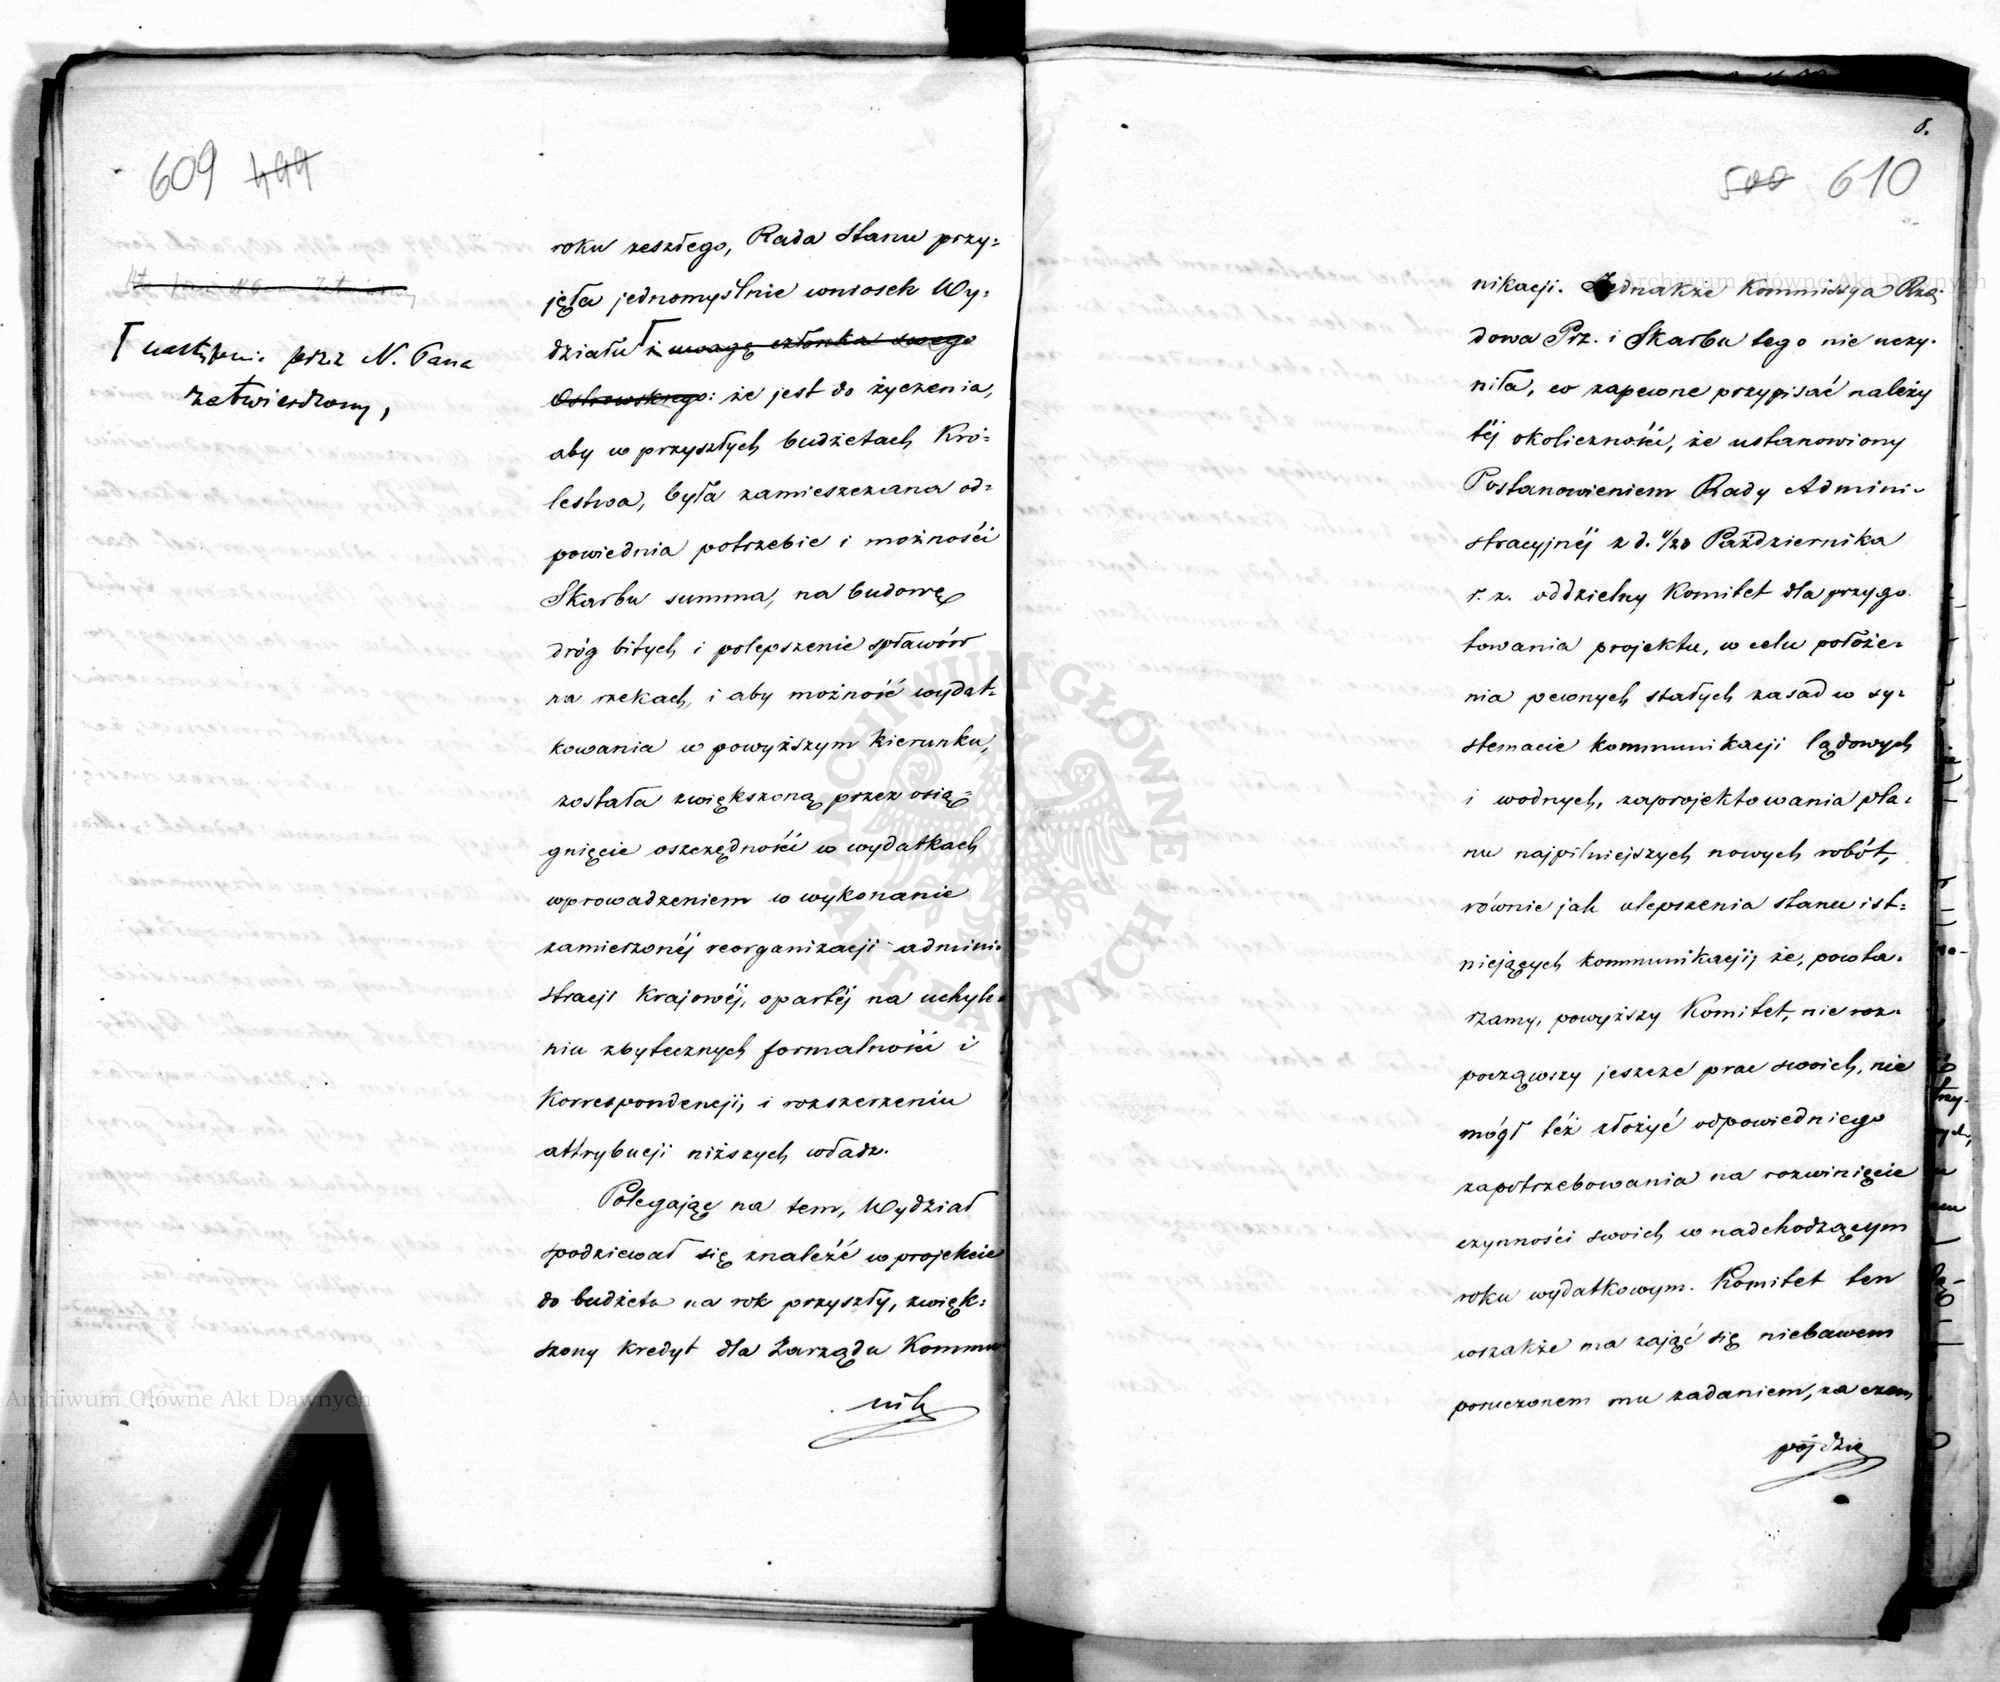 609 499
⌈ następnie przez N. Pana
zatwierdzony,
roku zeszłego, Rada Stanu przy=
jęła jednomyślnie wniosek Wy=
działu ⌈ i uwagę członka swego
Ostrowskiego: że jest do życzenia,
aby w przyszłych budżetach Kró=
lestwa, była zamieszczana od=
powiednia potrzebie i możności
Skarbu summa, na budowę
dróg bitych i polepszenie spławów
na rzekach, i aby możność wydat=
kowania w powyższym kierunku,
została zwiększoną przez osią=
gnięcie oszczędności w wydatkach
wprowadzeniem w wykonanie
zamierzonéj reorganizacji admini=
stracji Krajowéj, opartéj na uchyle=
niu zbytecznych formalności i
Korrespondencji, i rozszerzeniu
attrybucji niższych władz.
Polegając na tem, Wydział
spodziewał się znaleźć w projekcie
do budżetu na rok przyszły, zwięk=
szony kredyt dla Zarządu Kommu
nik
8.
500 610
nikacji. Jednakże Kommissya Rzą=
dowa Prz. i Skarbu tego nie uczy=
niła, co zapewne przypisać należy
téj okoliczności, że ustanowiony
Postanowieniem Rady Admini=
stracyjnéj z d. 11/23 Października
r. z. oddzielny Komitet dla przygo
towania projektu, w celu położe=
nia pewnych stałych zasad w sy=
stemacie kommunikacji lądowych
i wodnych, zaprojektowania pla=
nu najpilniejszych nowych robót,
równie jak ulepszenia stanu ist=
niejących kommunikacji; że, powta=
rzamy, powyższy Komitet, nie roz=
począwszy jeszcze prac swoich, nie
mógł téż złożyć odpowiedniego
zapotrzebowania na rozwinięcie
czynności swoich w nadchodzącym
roku wydatkowym. Komitet ten
wszakże ma zająć się niebawem
poruczonem mu zadaniem, za czem
pójdzie
Archiwum Główne Akt Dawnych
Archiwum Główne Akt Dawnych
ARCHIWUM GŁÓWNE · AKT DAWNYCH ·